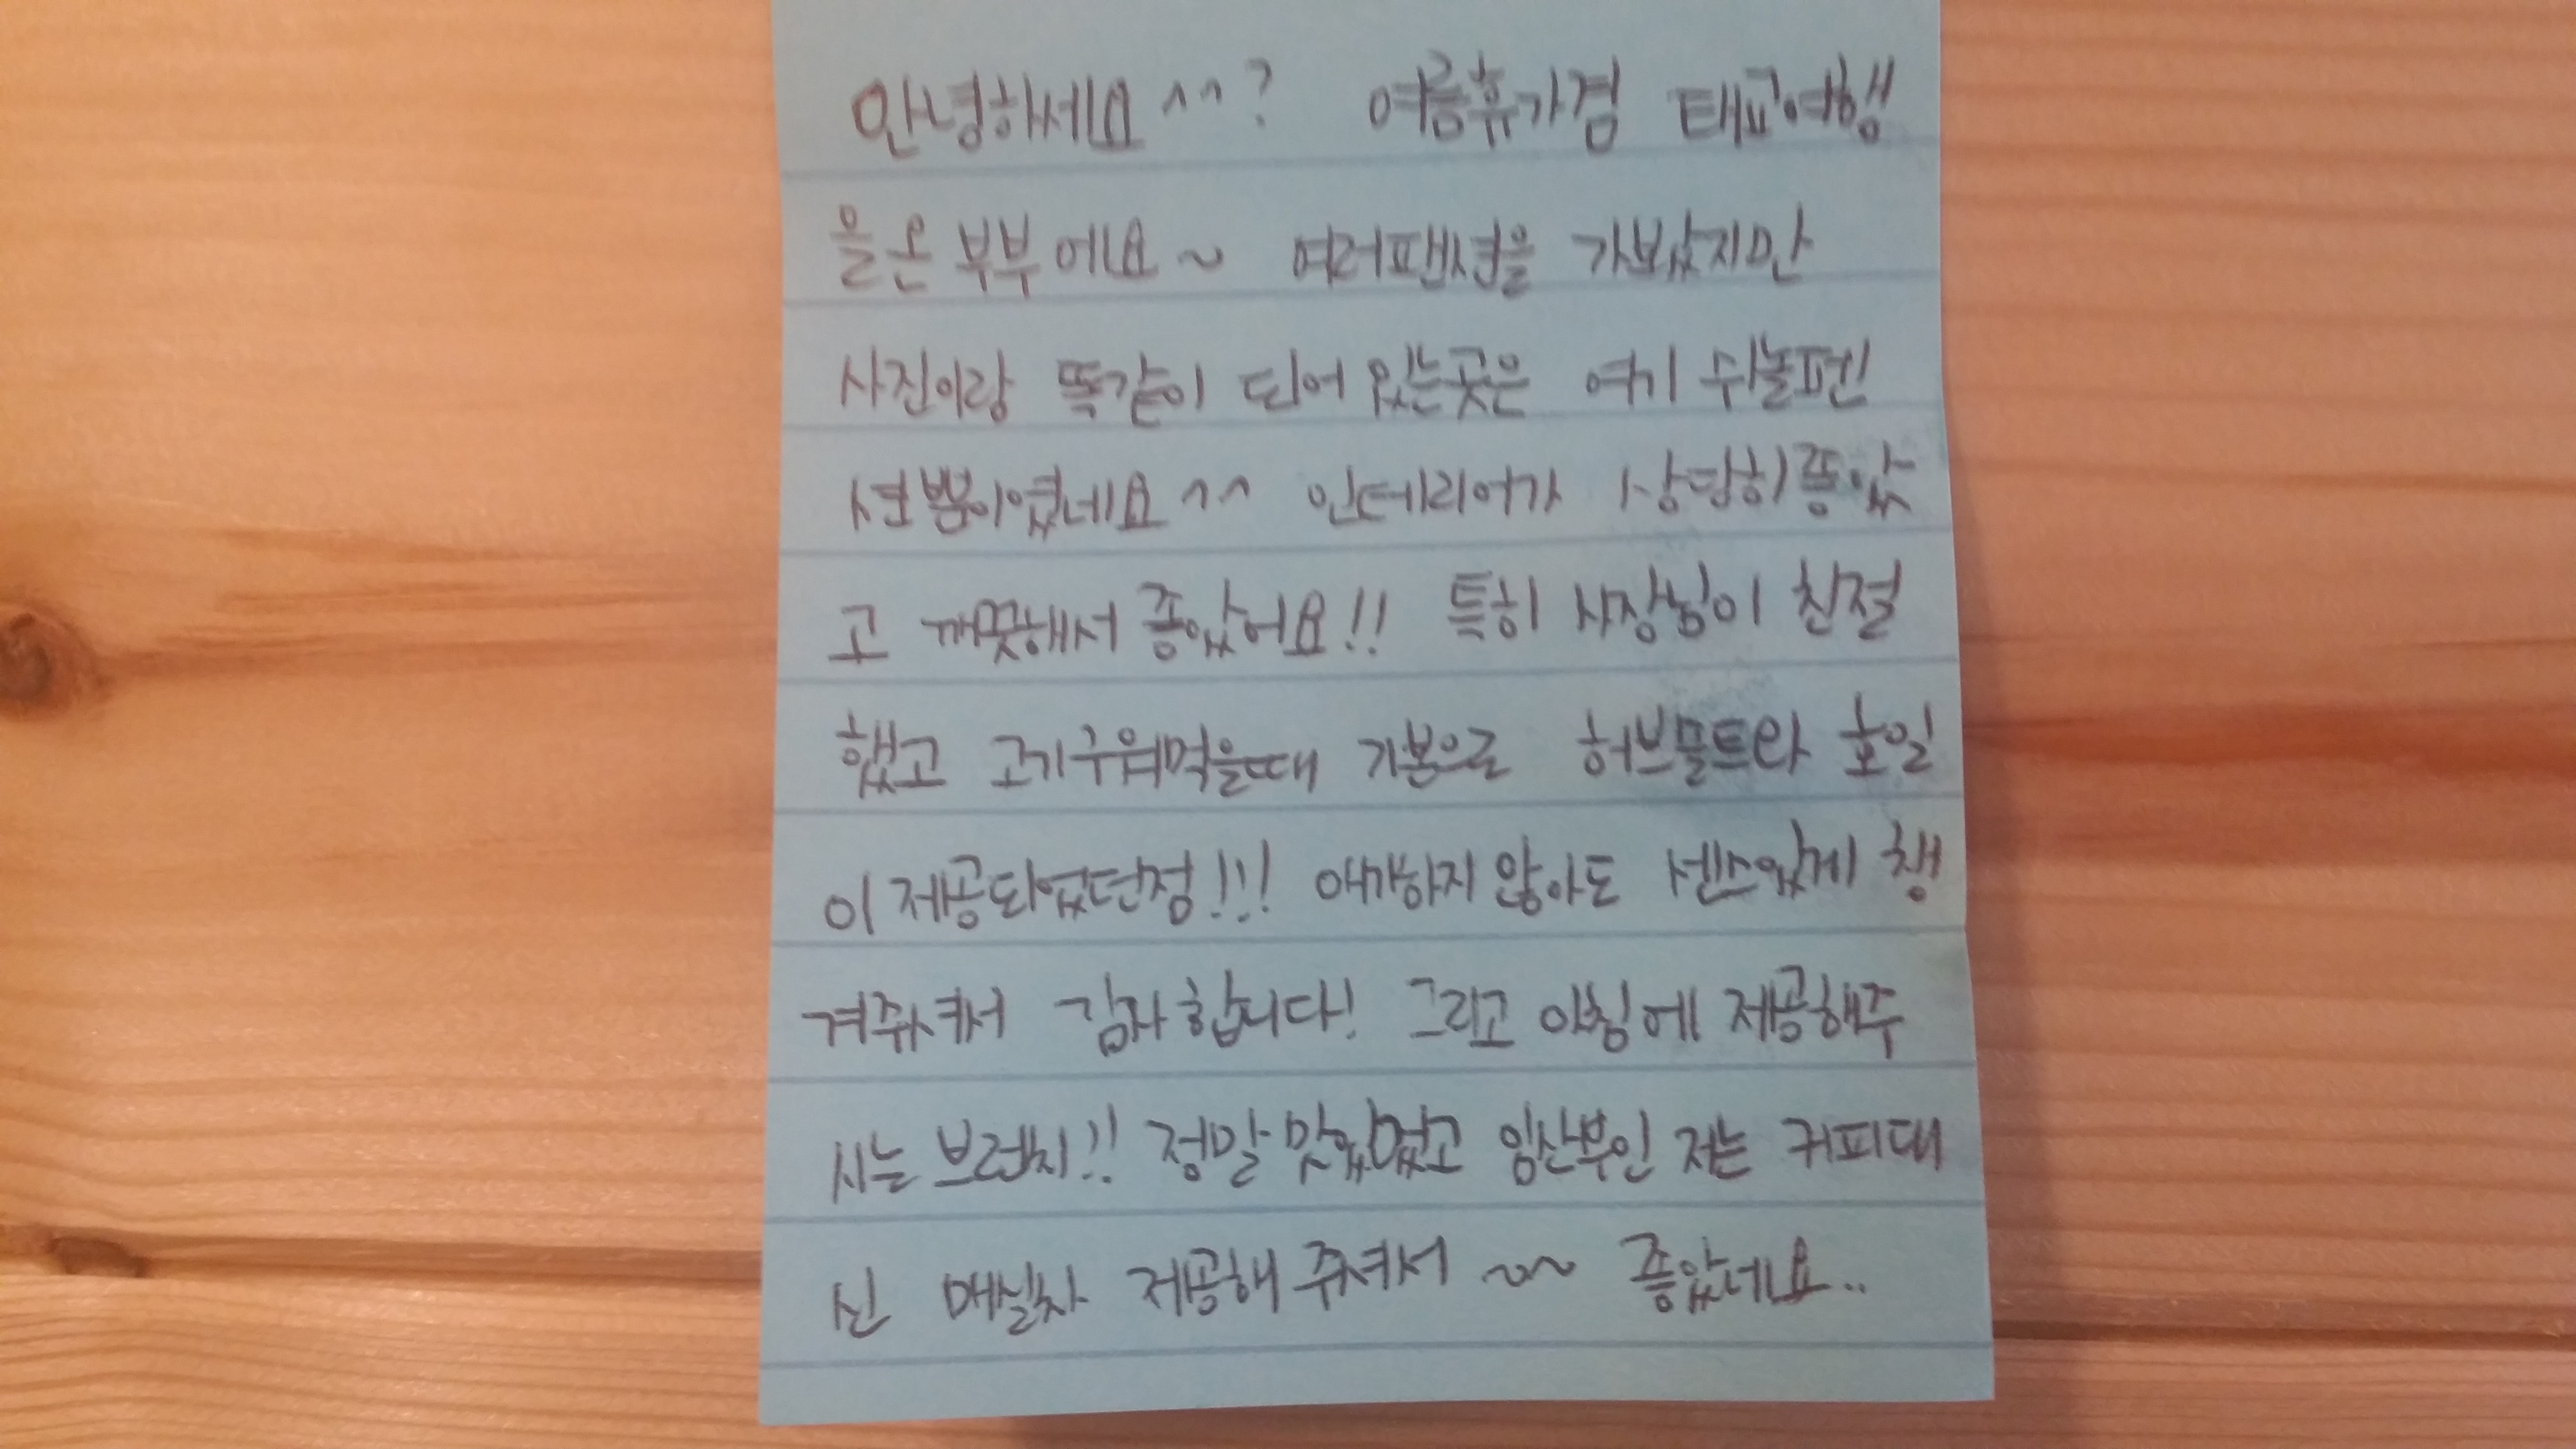 안녕하세요^^? 여름휴가겸 태교여행
을 온 부부에요~ 여러팬션을 가보았지만
사진이랑 똑같이 되어 있는곳은 여기 쉬놀펜
션뿐이였네요^^ 인테리어가 상당히 좋았
고 깨끗해서 좋았어요!! 특히 사장님이 친절
했고 고기구워먹을때 기본으로 허브솔트와 호일
이 제공되었던점!!! 얘기하지 않아도 센스있게 챙
겨줘셔서 감사합니다! 그리고 아침에 제공해주
시는 브런치!! 정말 맛있었고 임산부인 저는 커피대
신 매실차 제공해 주셔서 ~~ 좋았네요..